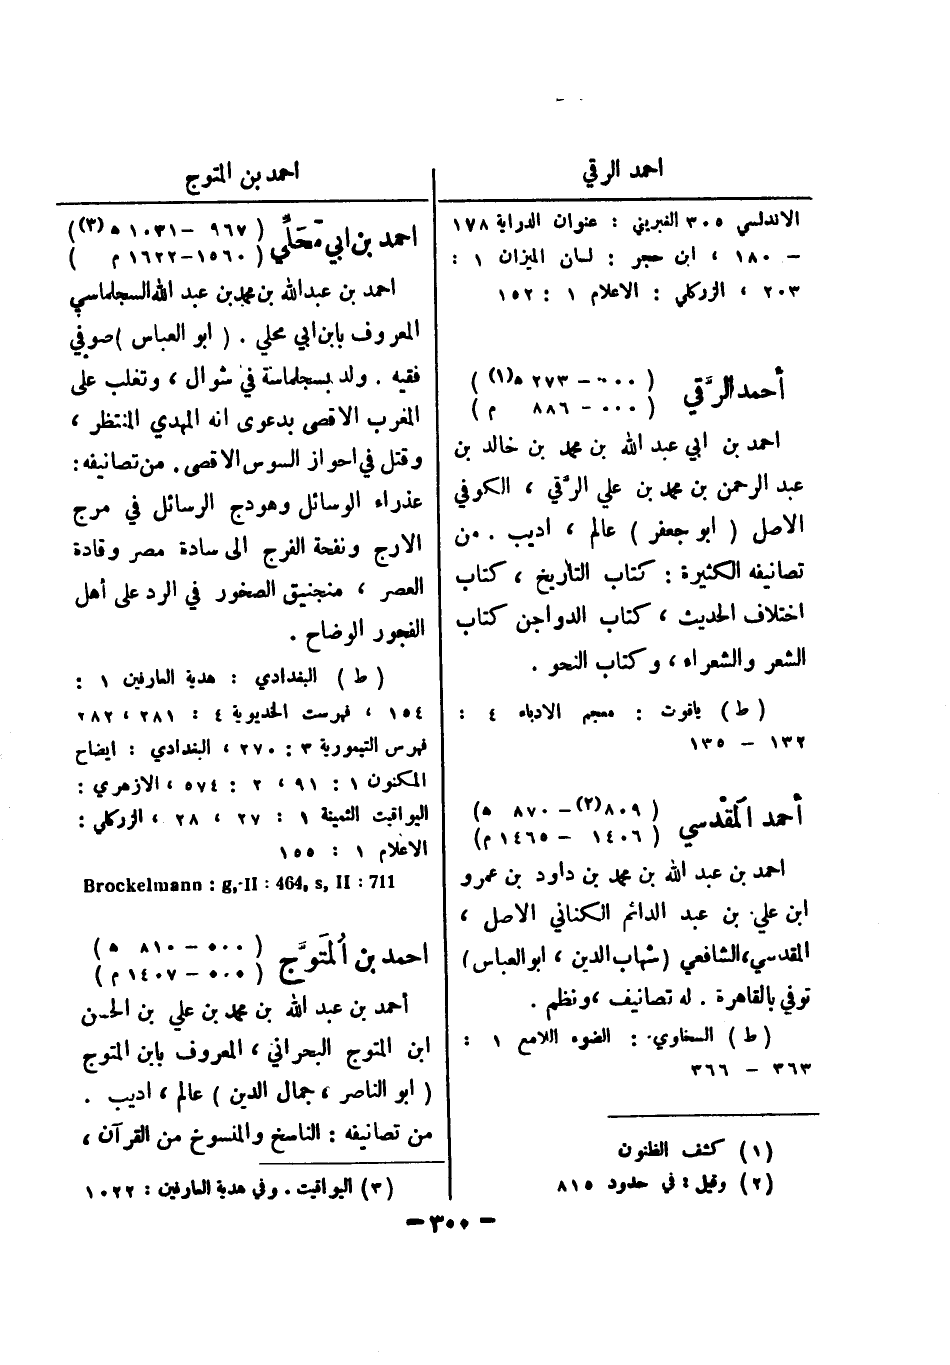 احمد الرقي
الاندلسي ٣٠٥ الغبريني : عنوان الدراية ١٧٨
– ١٨٠ ، ابن حجر : لسان الميزان ١ :
٢٠٣ ، الزركلي : الاعلام ١ : ١٥٢
أحمد الرَّقي ( ٠٠٠ – ٢٧٣ ه(١) )
( ٠٠٠ – ٨٨٦ م )
احمد بن ابي عبد الله بن محمد بن خالد بن
عبد الرحمن بن محمد بن علي الرقي ، الكوفي
الاصل ( ابو جعفر ) عالم ، اديب . من
تصانيفه الكثيرة : كتاب التأريخ ، كتاب
اختلاف الحديث ، كتاب الدواجن كتاب
الشعر والشعراء ، وكتاب النحو .
( ط ) ياقوت : معجم الادباء ٤ :
١٣٢ – ١٣٥
أحمد المَقْدسي ( ٨٠٩(٢) – ٨٧٠ ه )
( ١٤٠٦ – ١٤٦٥ م )
احمد بن عبد الله بن محمد بن داود بن عمرو
ابن علي بن عبد الدائم الكناني الاصل ،
المقدسي ، الشافعي (شهاب الدين ، ابو العباس)
توفي بالقاهرة . له تصانيف ، ونظم .
( ط ) السخاوي : الضوء اللامع ١ :
٣٦٣ – ٣٦٦
(١) كشف الظنون
(٢) وقيل : في حدود ٨١٥
احمد بن المتوج
احمد بن ابي مَحَلِّي ( ٩٦٧ – ١٠٣١ ه(٣) )
( ١٥٦٠ – ١٦٢٢ م )
احمد بن عبدالله بن محمد بن عبد الله السجلماسي
المعروف بابن ابي محلي . ( ابو العباس ) صوفي
فقيه . ولد بسجلماسة في شوال ، وتغلب على
المغرب الاقصى بدعوى انه المهدي المنتظر ،
وقتل في احواز السوس الاقصى . من تصانيفه :
عذراء الوسائل وهودج الرسائل في مرج
الارج ونفحة الفرج الى سادة مصر وقادة
العصر ، منجنيق الصخور في الرد على أهل
الفجور الوضاح .
( ط ) البغدادي : هدية العارفين ١ :
١٥٤ ، فهرست الخديوية ٤ : ٢٨١ ، ٢٨٢
فهرس التيمورية ٣ : ٢٧٠ ، البغدادي : ايضاح
المكنون ١ : ٩١ ، ٢ : ٥٧٤ ، الازهري :
اليواقيت الثمينة ١ : ٢٧ ، ٢٨ ، الزركلي :
الاعلام ١ : ١٥٥
Brockelmann : g, II : 464, s, II : 711
احمد بن المُتَوَّج ( ٠٠٠ – ٨١٠ ه )
( ٠٠٠ – ١٤٠٧ م )
أحمد بن عبد الله بن محمد بن علي بن الحسن
ابن المتوج البحراني ، المعروف بابن المتوج
( ابو الناصر ، جمال الدين ) عالم ، اديب .
من تصانيفه : الناسخ والمنسوخ من القرآن ،
(٣) اليواقيت . وفي هدية العارفين : ١٠٢٢
– ٣٠٠ –